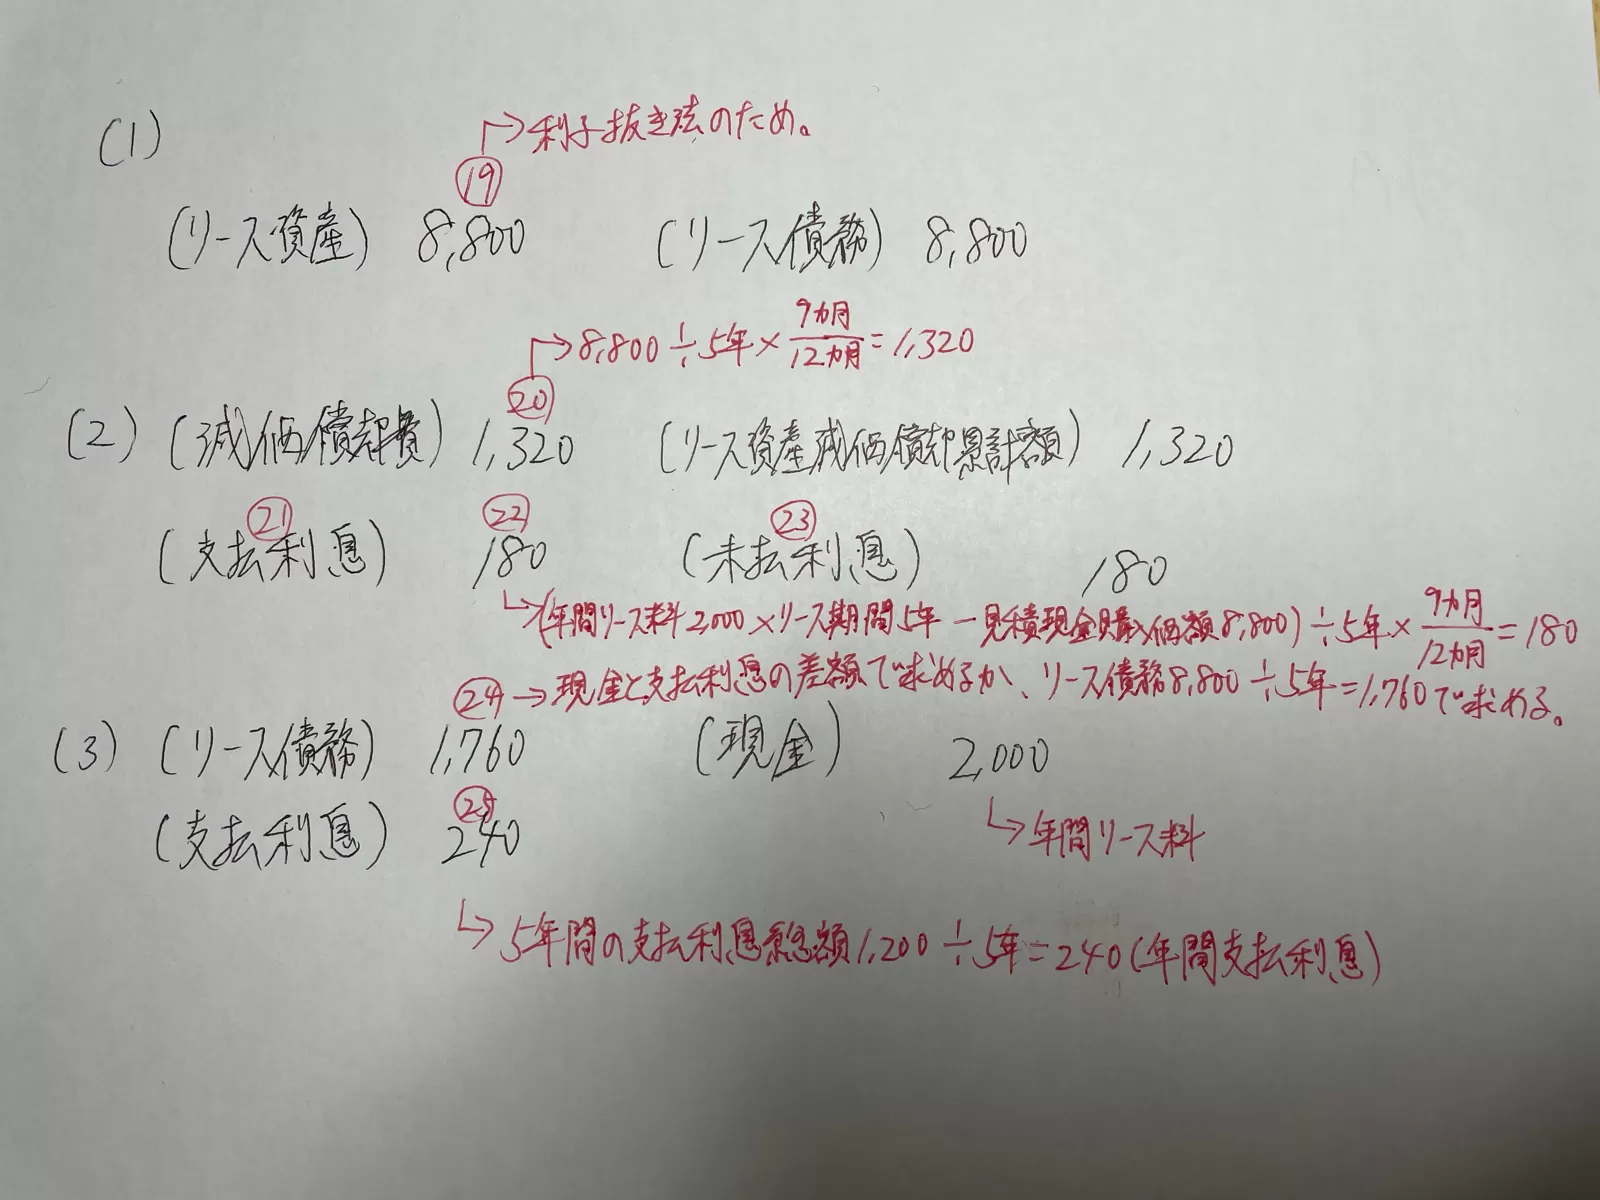 (1)
→利子抜き法のため。
⑲
(リース資産) 8,800 (リース債務) 8,800
→8,800÷5年×9カ月/12カ月=1,320
⑳
(2) (減価償却費) 1,320 (リース資産減価償却累計額) 1,320
㉑ ㉒ ㉓
(支払利息) 180 (未払利息) 180
→(年間リース料2,000×リース期間5年-見積現金購入価額8,800)÷5年×9カ月/12カ月=180
㉔→現金と支払利息の差額で求めるか、リース債務8,800÷5年=1,760で求める。
(3) (リース債務) 1,760 (現金) 2,000
㉕
(支払利息) 240
→年間リース料
→5年間の支払利息総額1,200÷5年=240(年間支払利息)